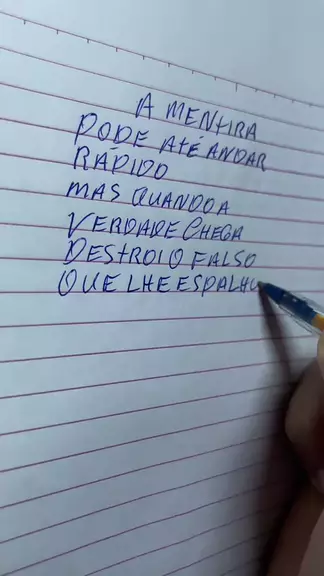 A MENTIRA
PODE ATÉ ANDAR
RÁPIDO
MAS QUANDO A
VERDADE CHEGA
DESTROI O FALSO
QUE LHE ESPALHO